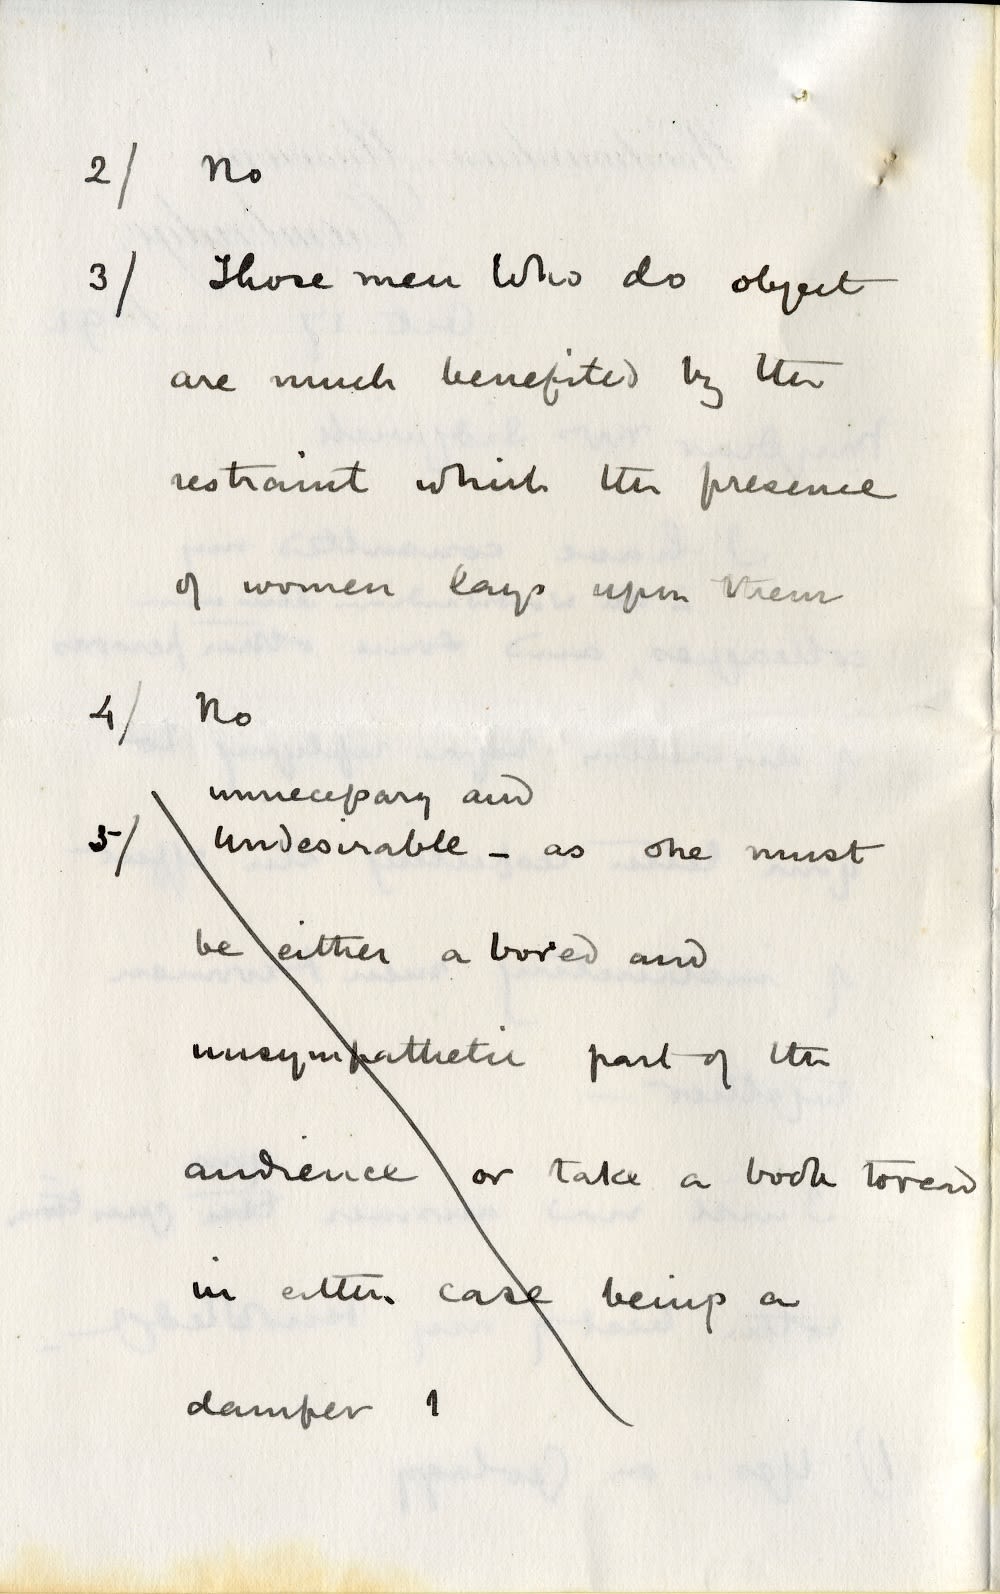 2/ No
3/ Those men who do object
are much benefited by the
restraint which the presence
of women lays upon them
4/ No
unnecessary and
5/ Undesirable – as one must
be either a bored and
unsympathetic part of the
audience or take a book to read
in either case being a
damper !